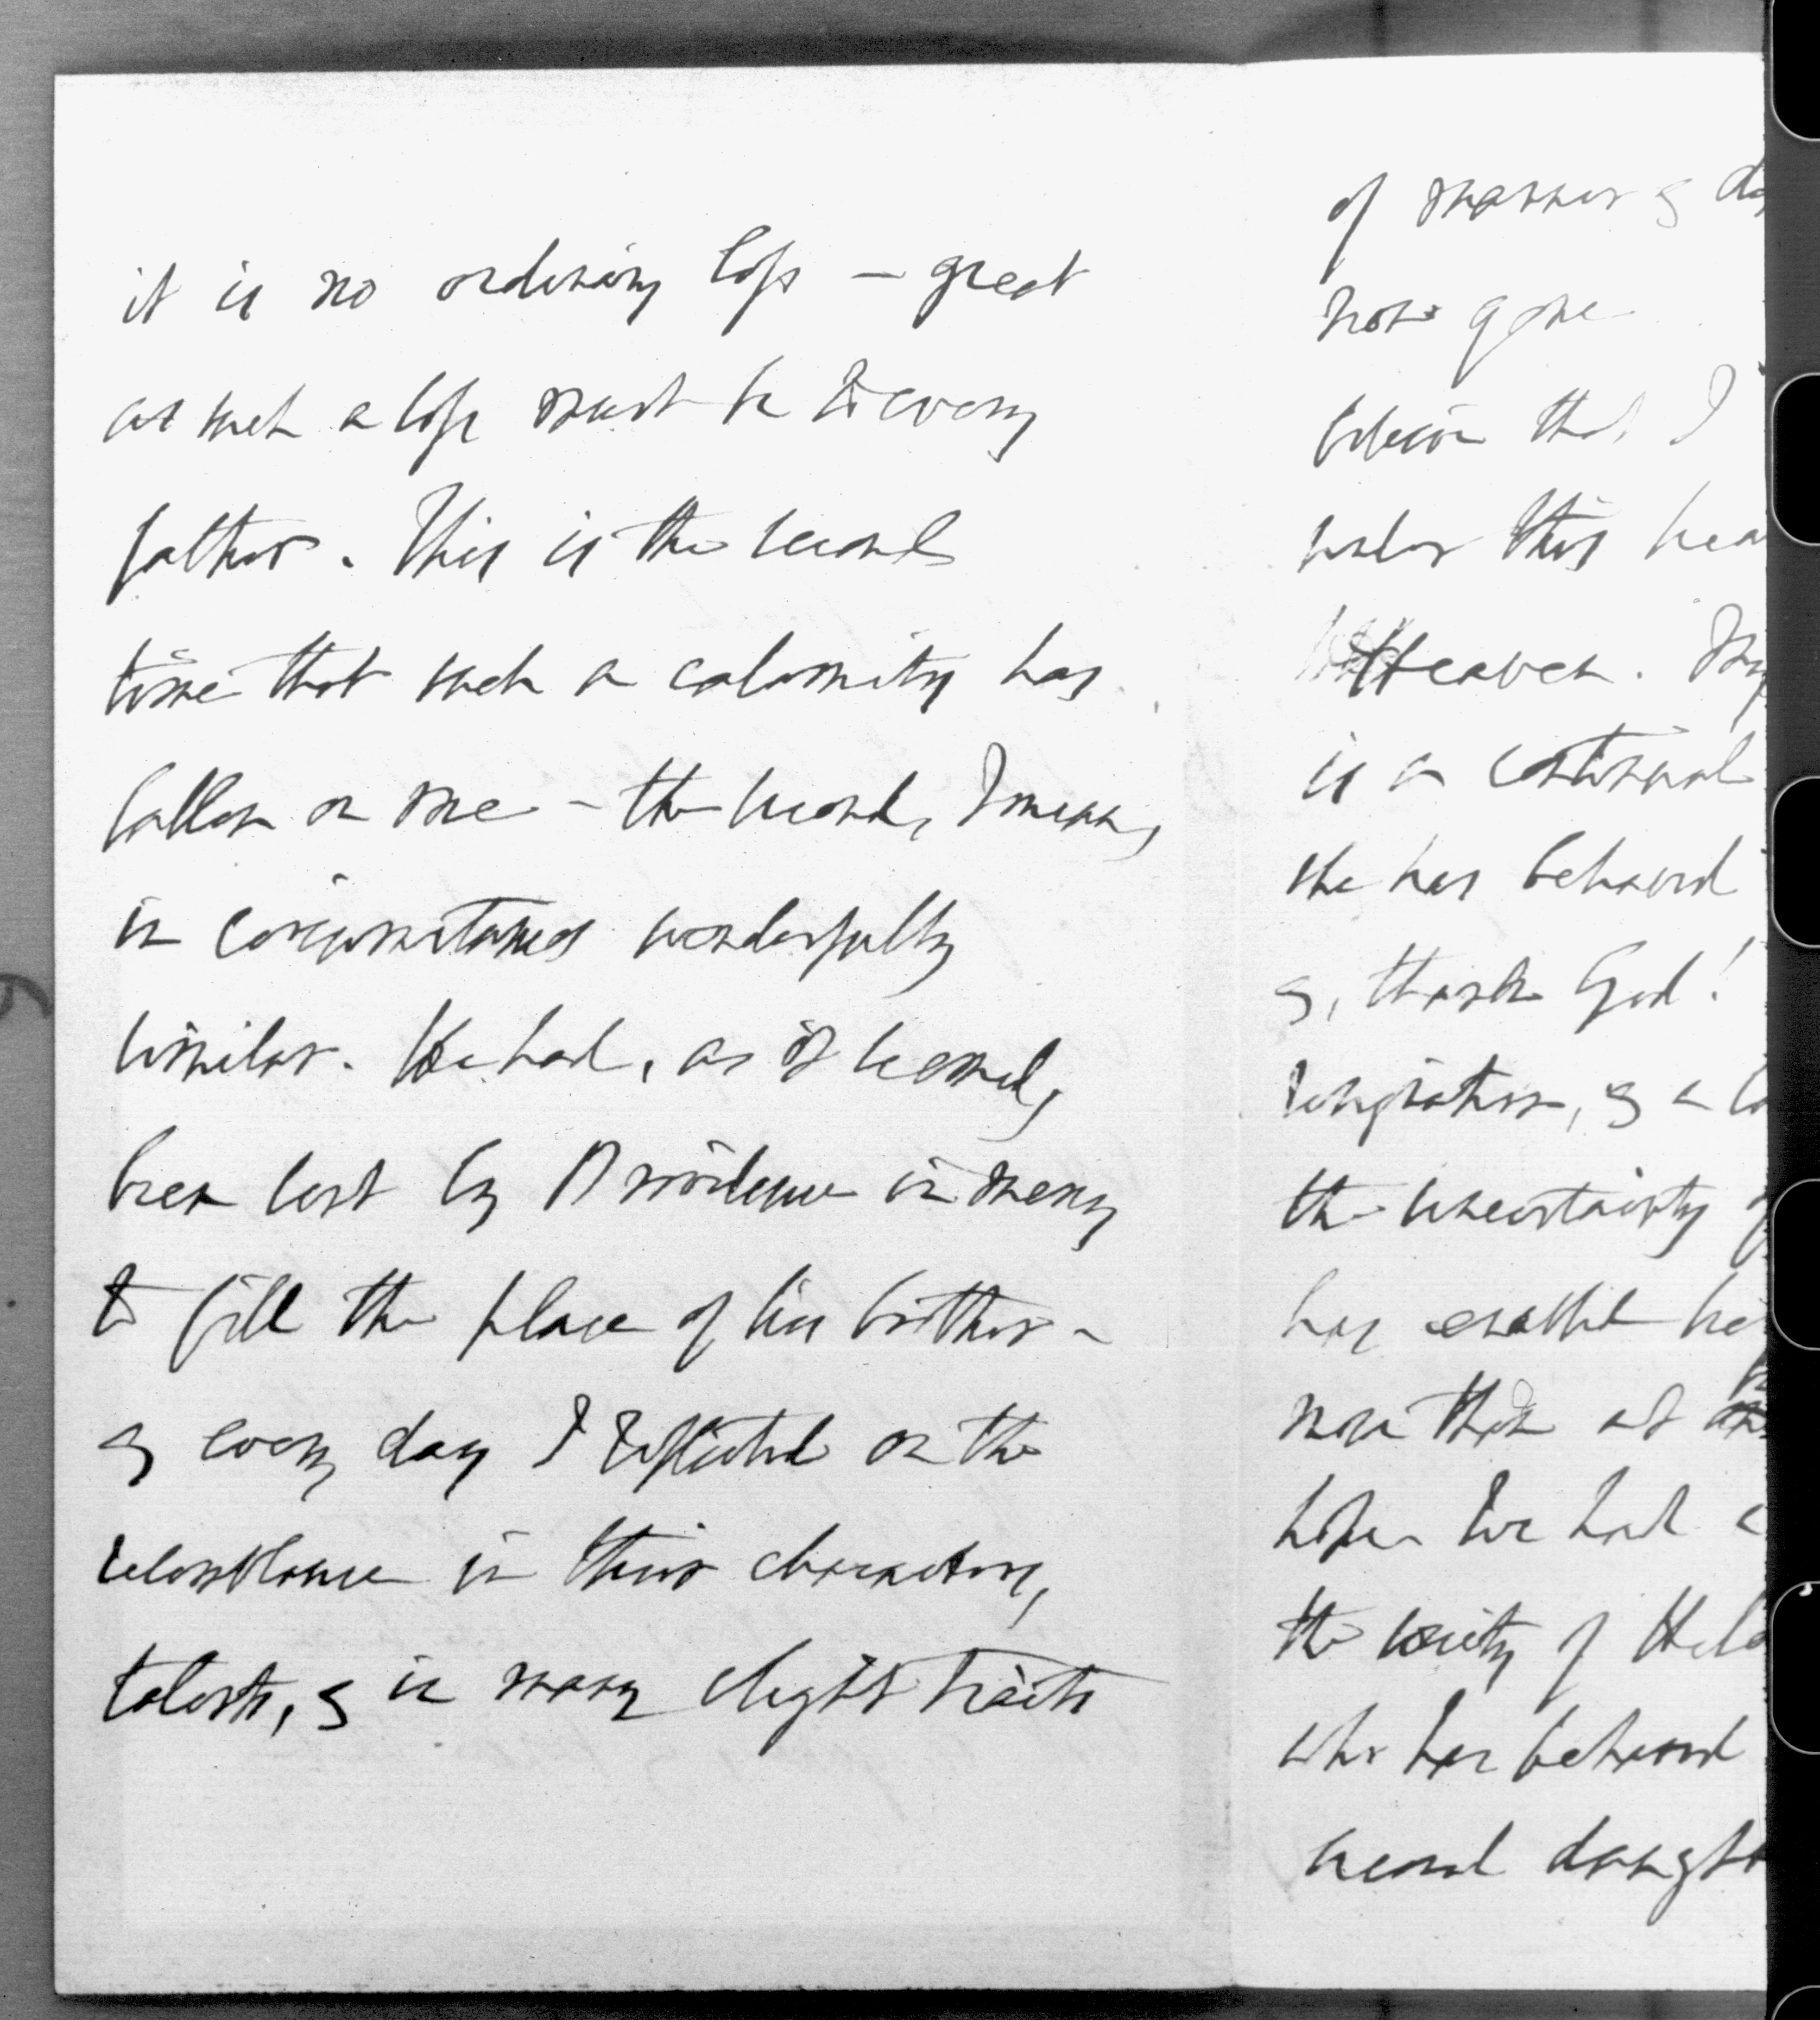 it is no ordinary loss – great
as such a loss must be to every
father. This is the second
time that such a calamity has
fallen on me – the second, I mean,
in circumstances wonderfully
similar. He had, as it seemed,
been sent by Providence in mercy
to fill the place of his brother –
& every day I reflected on the
resemblance in their characters,
talents, & in many slight traits
of manner &
not gone
believe that I
under this
Heaven. My
is a continual
she has behaved
&, thank God!
resignation, & a
the uncertainty
has enabled
more than at
hope we had
the society of
who has behaved
second